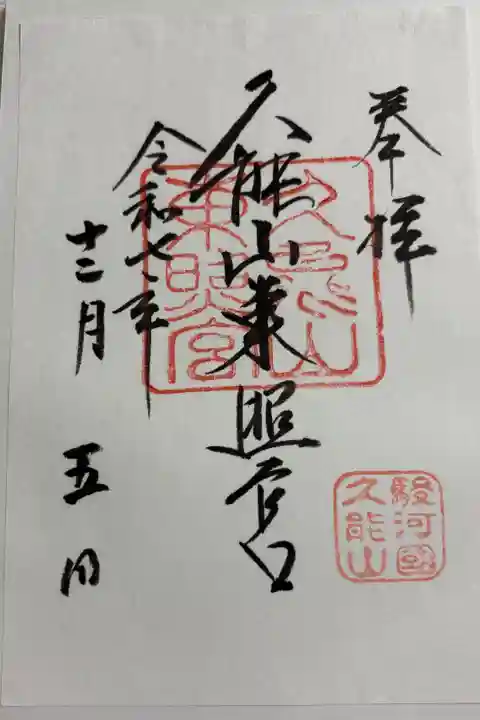 奉拝
駿河國
久能山
久能山東照宮
久能山
東照宮
令和七年
十二月 五日